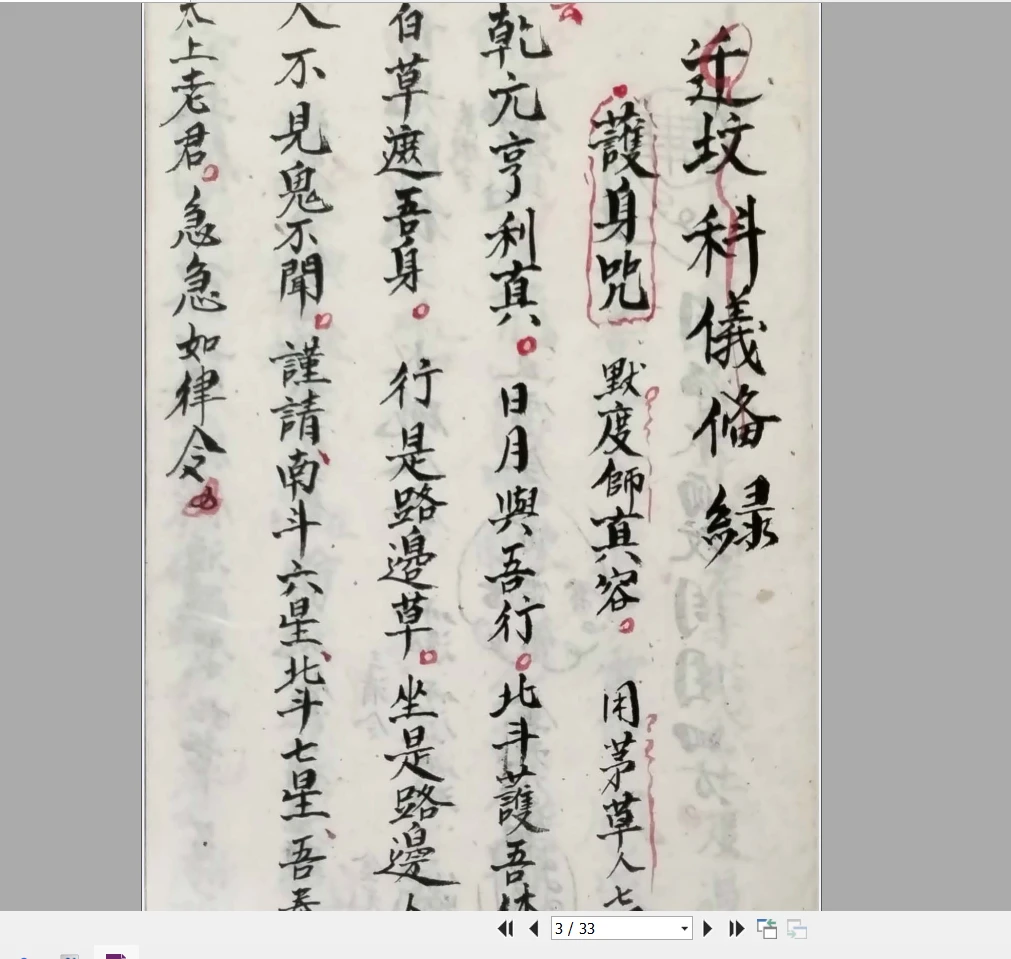 迁坟科儀俻録
護身咒 默度師真容 用茅草人七
乾元亨利真 日月與吾行 北斗護吾体
白草遮吾身 行是路邊草 坐是路邊人
人不見鬼不聞 謹請南斗六星北斗七星 吾奉
太上老君 急急如律令
3 / 33